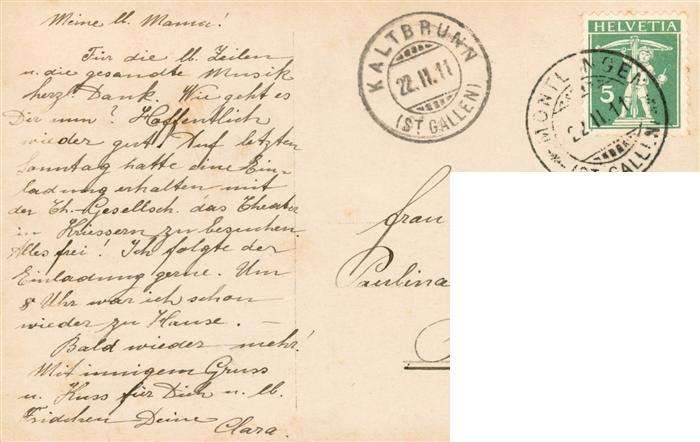 Meine lb. Mama!
Für die lb. Zeilen
u. die gesandte Musik
herzl. Dank. Wie geht es
Dir nun? Hoffentlich
wieder gut! Auf letzten
Sonntag hatte eine Ein-
ladung erhalten mit
der Th-Gesellsch. das Theater
in zu besuchen.
Alles frei! Ich folgte der
Einladung gerne. Um
8 Uhr war ich schon
wieder zu Hause. –
Bald wieder mehr!
Mit innigem Gruss
u. Kuss für Dich u. lb.
Fridchen Deine
Clara.
KALTBRUNN
22.II.11
(ST. GALLEN)
HELVETIA
5
MONTLINGEN
22.II.11
(ST. GALLEN)
Frau
Paulina